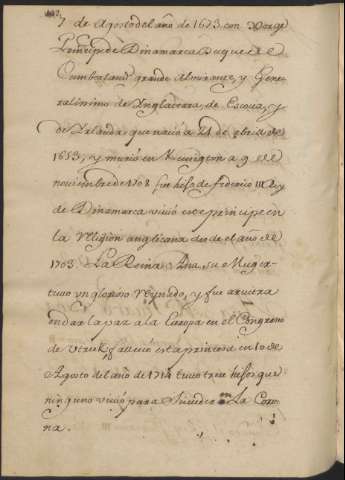 7 de Agosto del año de 1673. con Jorge
Principe de Dinamarca Duque de
Cumberland grande Almirante, y Gene-
ralisimo de Ynglaterra, de Escocia, y
de Irlanda que nacio a 21 de abril de
1653, y murio en Kensington a 9 de
noviembre de 1708 fue hijo de federico III Rey
de Dinamarca vivio este principe en
la religion anglicana desde el año de
1703. La Reina Ana, su Muger
tuvo un glorioso Reynado, y fue arvitra
en dar la paz a la Europa en el Congreso
de Utrek, fallecio esta princesa en 10 de
Agosto del año de 1714 tuvo tres hijos que
ninguno vivio para suceder en La Coro-
na.